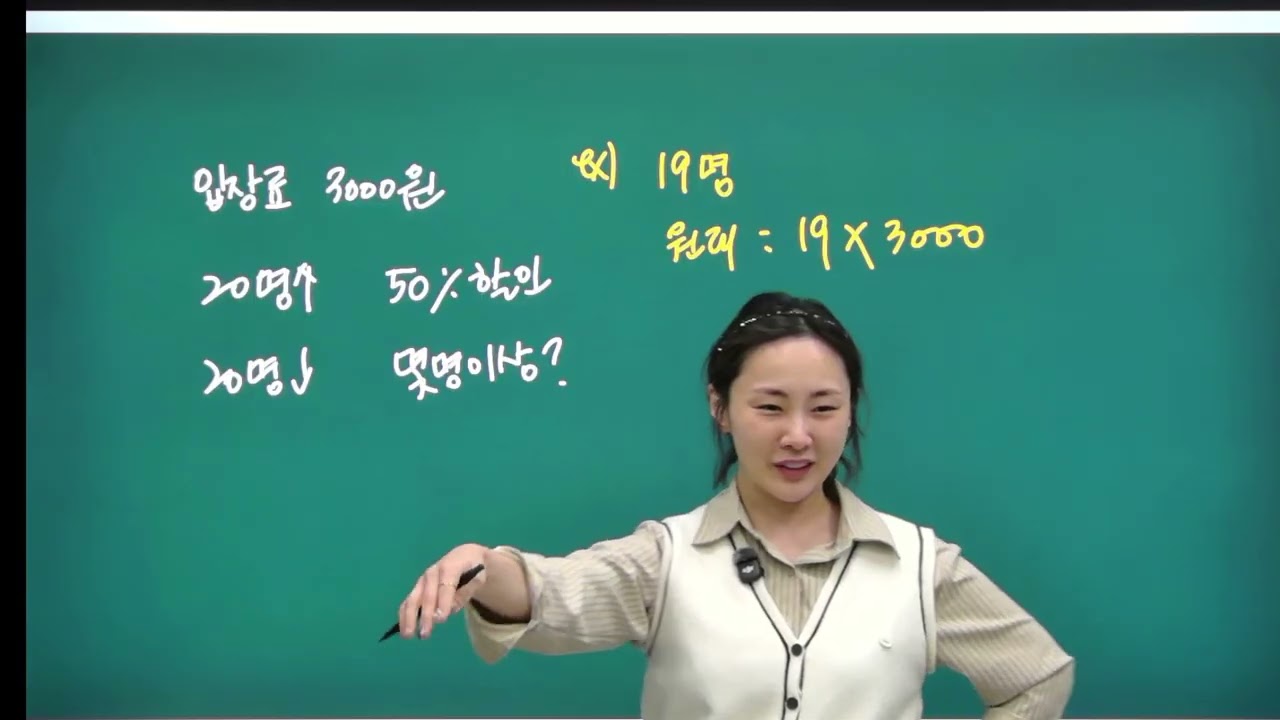 입장료 3000원
20명↑ 50%할인
20명↓ 몇명이상?
ex) 19명
원래 : 19×3000